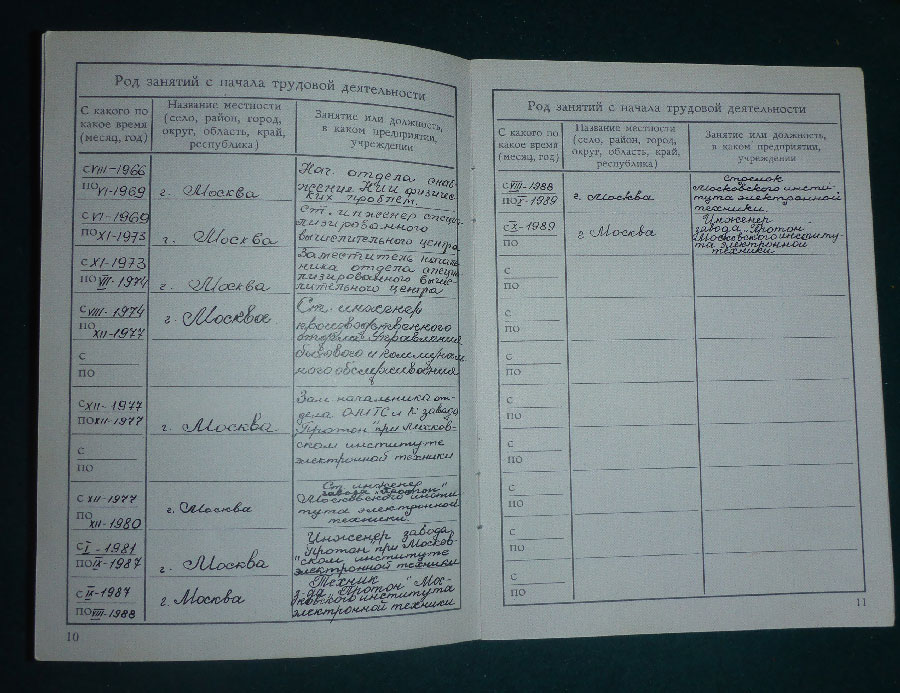 Род занятий с начала трудовой деятельности
С какого по
какое время
(месяц, год)
Название местности
(село, район, город,
округ, область, край,
республика)
Занятие или должность,
в каком предприятии,
учреждении
с VIII-1966
по VI-1969
г. Москва
Нач. отдела снаб-
жение НИИ физичес-
ких проблем.
с VI-1969
по XI-1973
г. Москва
Ст. инженер специа-
лизированного
вычислительного центра
с XI-1973
по VII-1974
г. Москва
Заместитель началь-
ника отдела специа-
лизированного вычис-
лительного центра
с VIII-1974
по XII-1977
г. Москва
Ст. инженер
производственного
отдела Управления
бытового и коммуналь-
ного обслуживания
с
по
с XII-1977
по XII-1977
г. Москва
Зам начальника от-
дела ОМТС и К завода
"Протон" при Москов-
ском институте
электронной техники
с
по
с XII-1977
по XII-1980
г. Москва
Ст. инженер
завода "Протон"
Московского инсти-
тута электронной
техники.
с I-1981
по IX-1987
г. Москва
Инженер завода
"Протон" при Москов-
ском институте
электронной техники
с IX-1987
по VIII-1988
г. Москва
Техник
з-да "Протон" Мос-
ковского института
электронной техники
10
Род занятий с начала трудовой деятельности
С какого по
какое время
(месяц, год)
Название местности
(село, район, город,
округ, область, край,
республика)
Занятие или должность,
в каком предприятии,
учреждении
с VIII-1988
по X-1989
г. Москва
Стрелок
Московского инсти-
тута электронной
техники.
с X-1989
по
г Москва
Инженер
завода "Протон"
Московского институ-
та электронной
техники
с
по
с
по
с
по
с
по
с
по
с
по
с
по
с
по
11